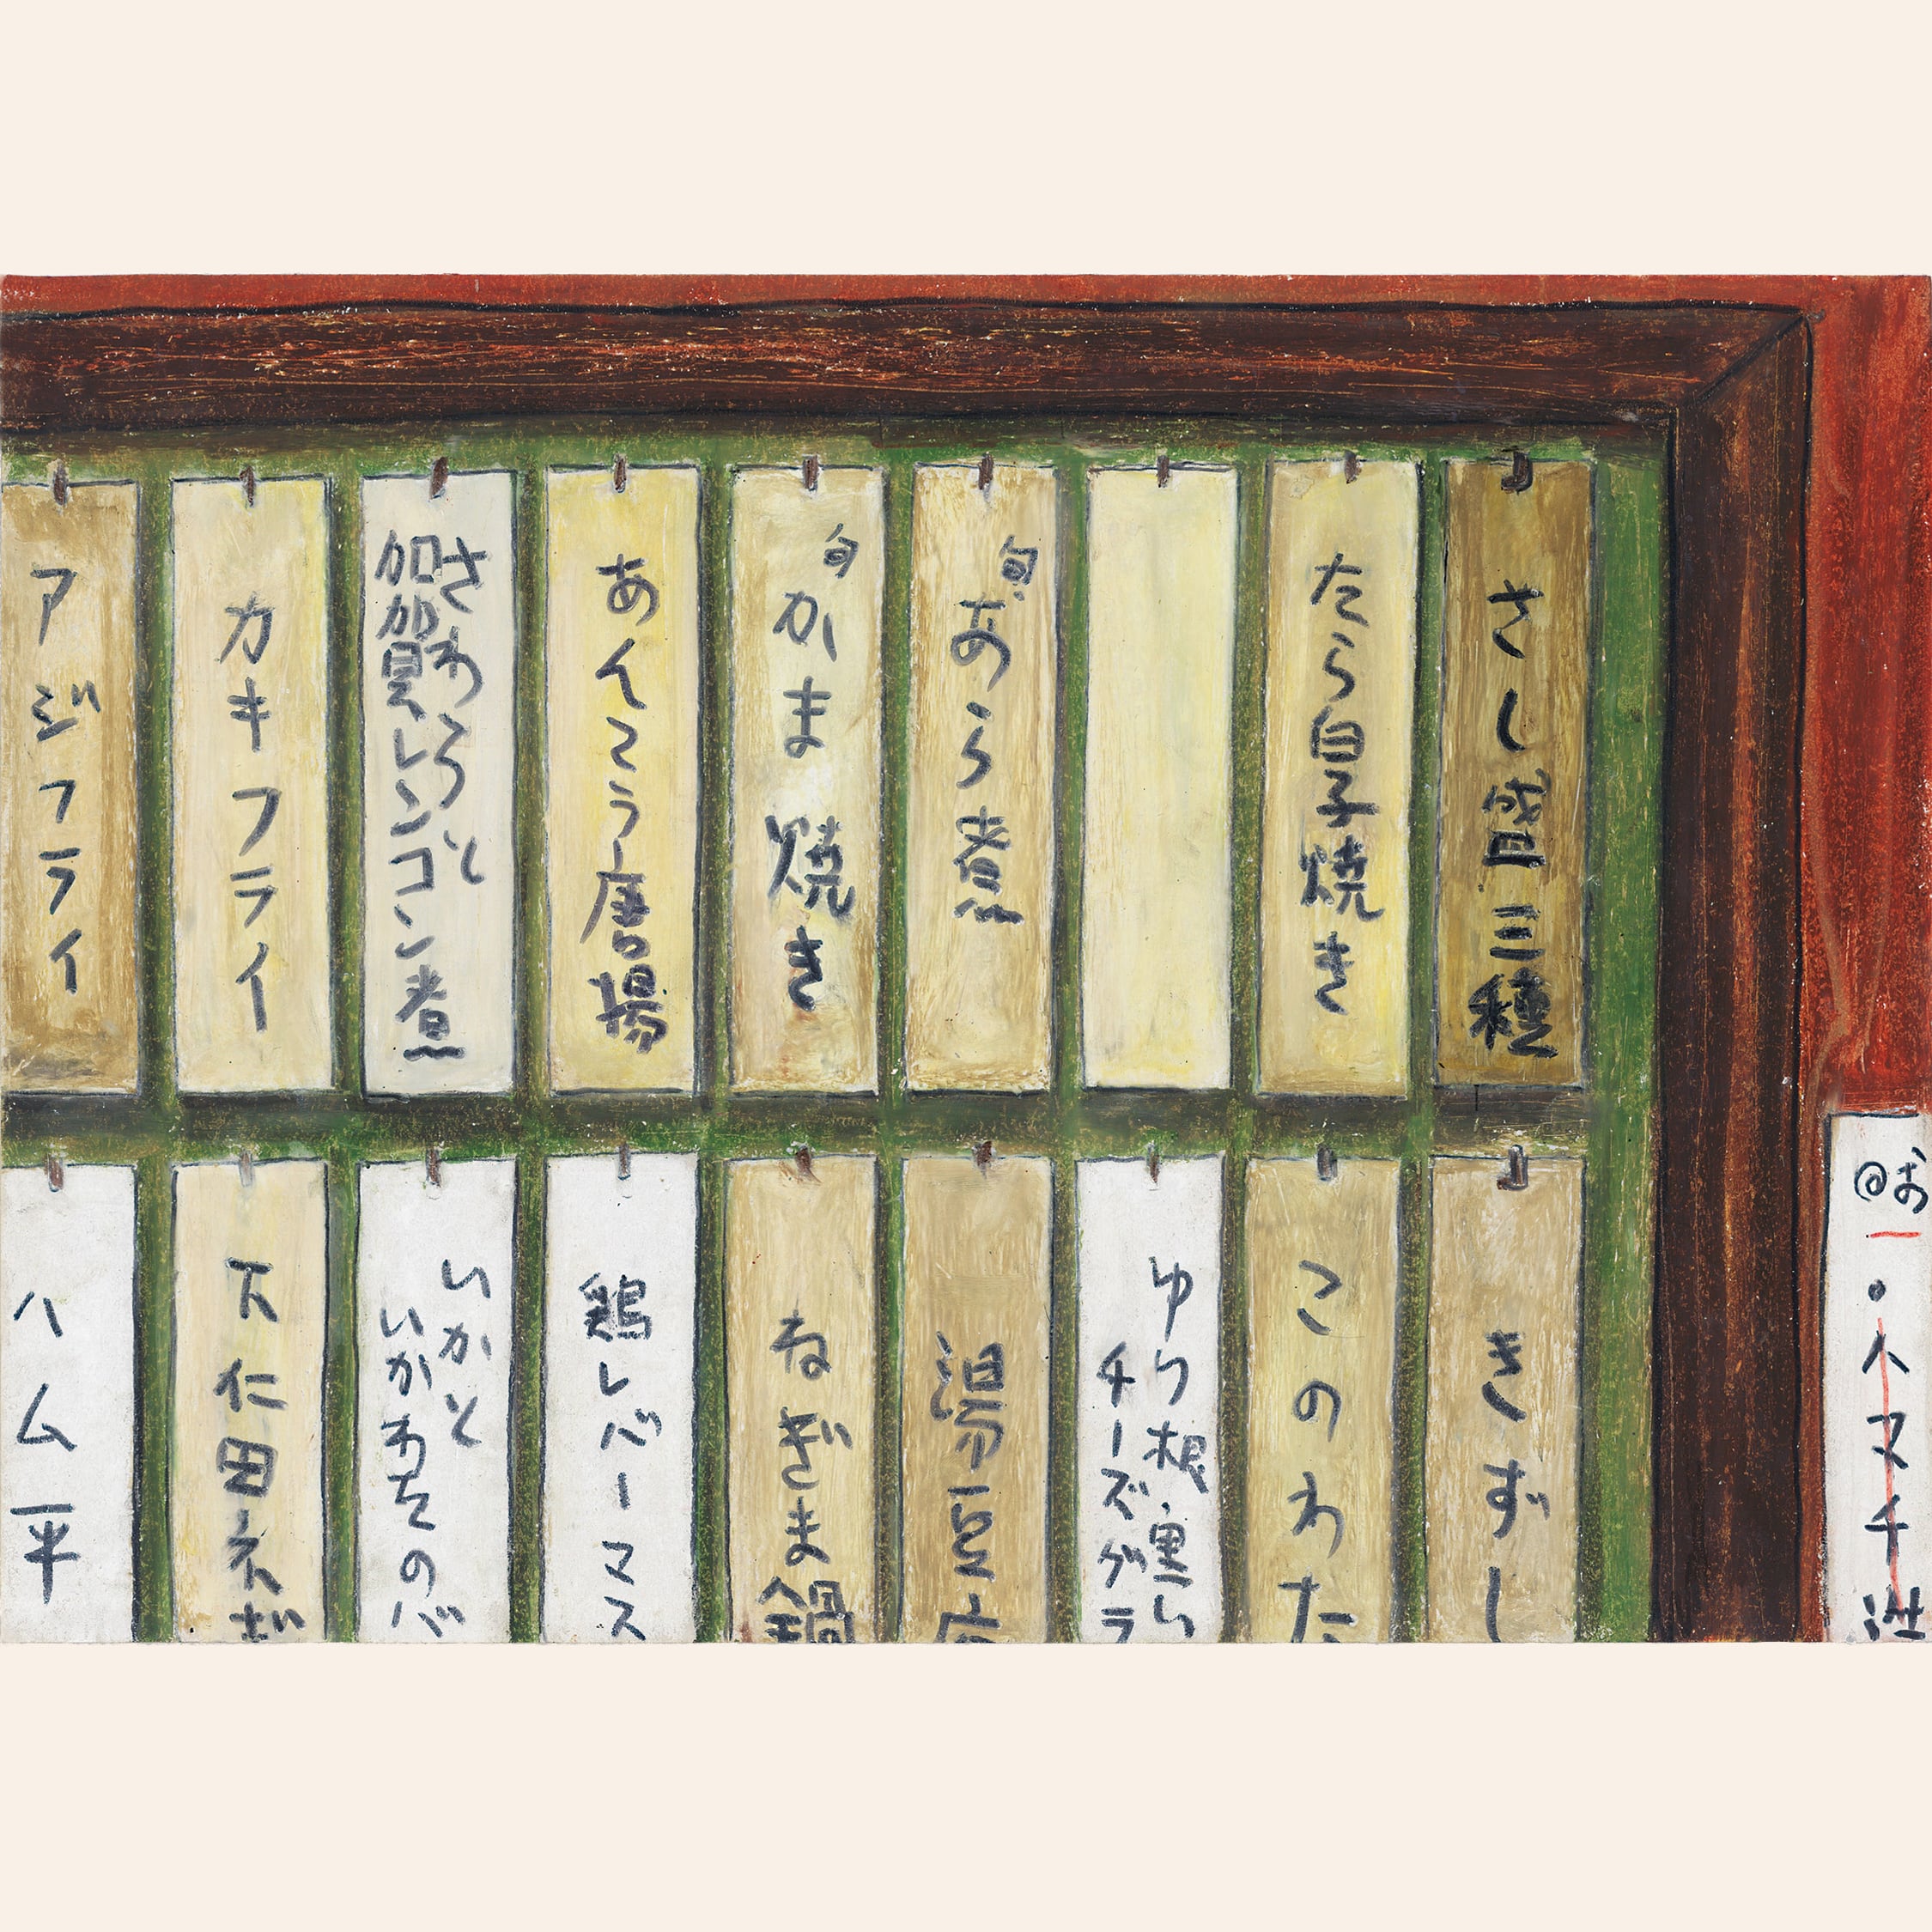 さし盛三種
たら白子焼き
旬
あら煮
旬
かま焼き
あんこう唐揚
さわらと
加賀レンコン煮
カキフライ
アジフライ
きずし
このわた
ゆり根・黒い
チーズグラ
湯豆
ねぎま鍋
鶏レバームス
いかと
いかわたのバ
下仁田ネギ
ハム平